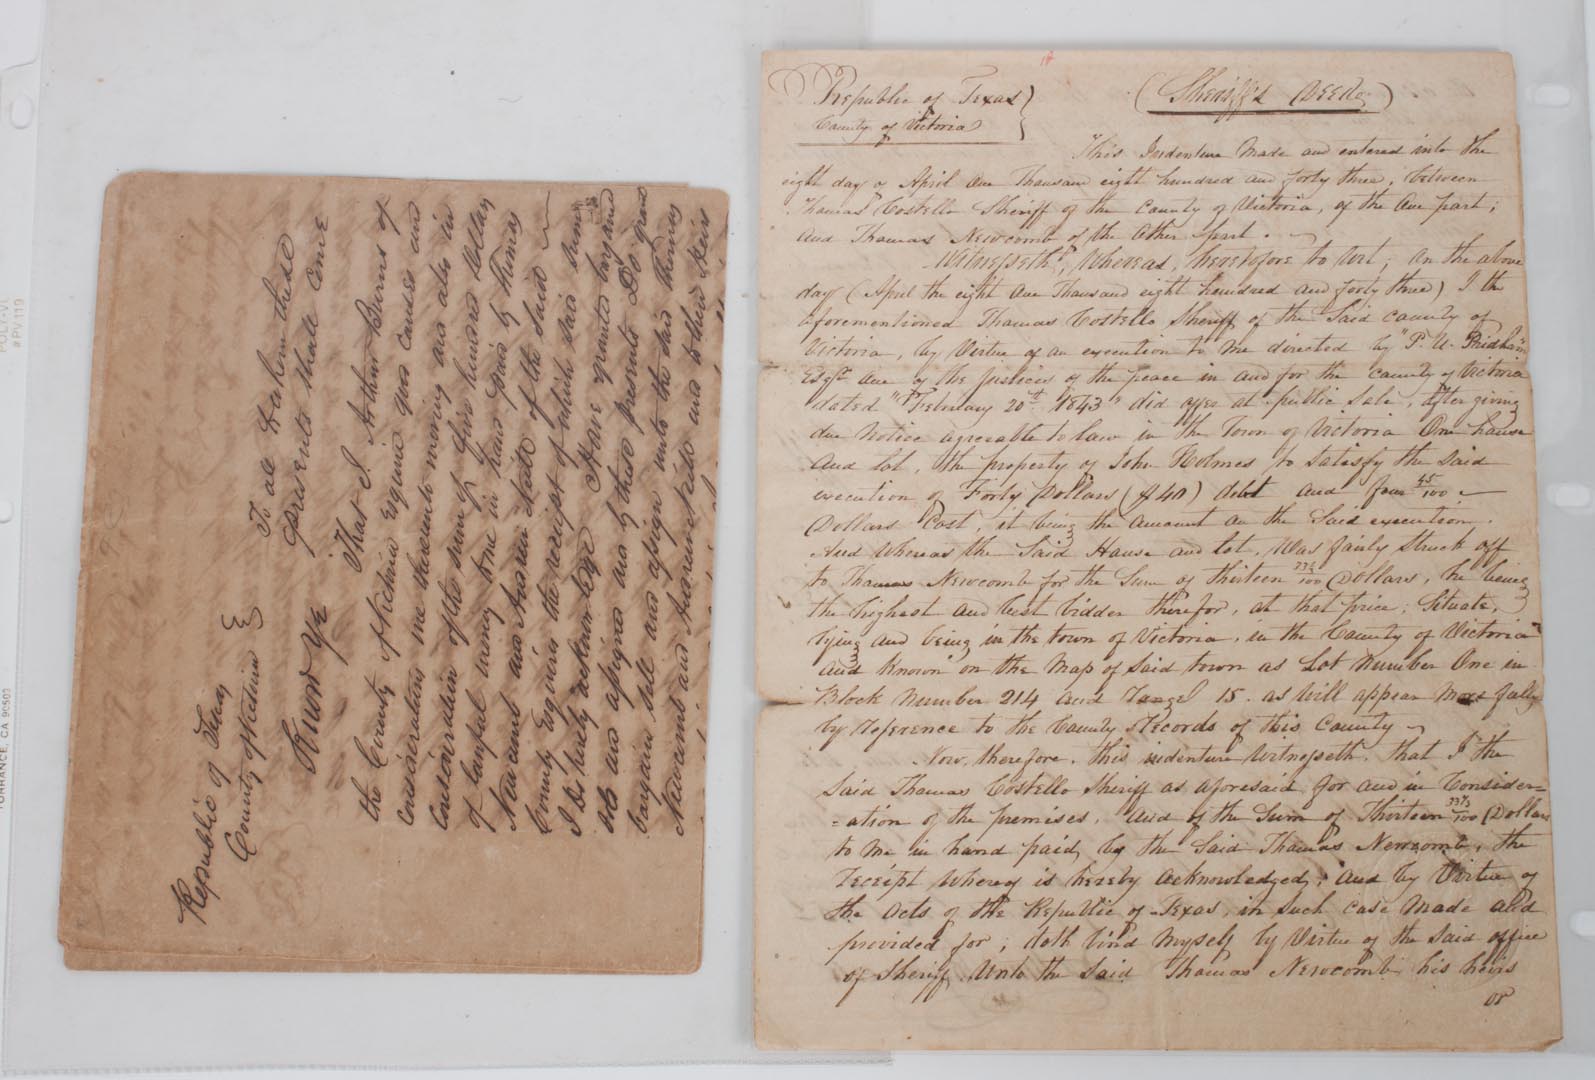 Republic of Texas
County of Victoria
To all to whom these
presents shall come
Know Ye That I Arthur Burns of
the County of Victoria Esquire good causes and
considerations me thereunto moving and also in
consideration of the sum of five hundred Dollars
of lawful money to me in hand paid by Thomas
Newcomb and Andrew Neill of the said
County Esquires the receipt of which said sum
I Do hereby acknowledge Have granted bargained
and by these presents Do grant
bargain sell and assign unto the said Thomas
Newcomb and Andrew Neill and to their heirs
(Sheriff's Deed)
Republic of Texas
County of Victoria
This Indenture Made and entered into the
eight day o April One Thousand eight hundred and forty three, between
Thomas Costello Sheriff of the County of Victoria, of the One part;
and Thomas Newcomb of the Other part.
Witnesseth, Whereas, heretofore to Wit; On the above
day (April the eight One Thousand eight hundred and forty three) I the
aforementioned Thomas Costello Sheriff of the Said County of
Victoria, by Virtue of an execution to me directed by "P. U. Pridham"
Esqr. One of the Justices of the peace in and for the County of Victoria
dated "February 20th 1843" did offer at public Sale, after giving
due Notice agreeable to law in the Town of Victoria One house
And lot, the property of John Holmes to Satisfy the Said
execution of Forty Dollars ($40) debt and four 45/100
Dollars Cost, it being the amount on the Said execution.
And Whereas the Said House and lot, Was fairly Struck off
to Thomas Newcomb for the Sum of thirteen 33⅓/100 Dollars, he being
the highest and best bidder therefor, at that price; Situate,
lying and being in the town of Victoria, in the County of Victoria
and known on the Map of Said town as Lot Number One in
Block Number 214 and Range 15. as Will appear More fully
by reference to the County Records of this County
Now, therefore, this indenture Witnesseth, that I the
Said Thomas Costello Sheriff as aforesaid for and in Consider=
=ation of the premises, And of the Sum of Thirteen 33⅓/100 Dollars
to me in hand paid, by the Said Thomas Newcomb, the
receipt Whereof is hereby acknowledged; And by Virtue of
the Acts of the Republic of Texas, in Such case Made and
provided for; doth bind Myself by Virtue of the Said office
of Sheriff, Unto the Said Thomas Newcomb his heirs
or